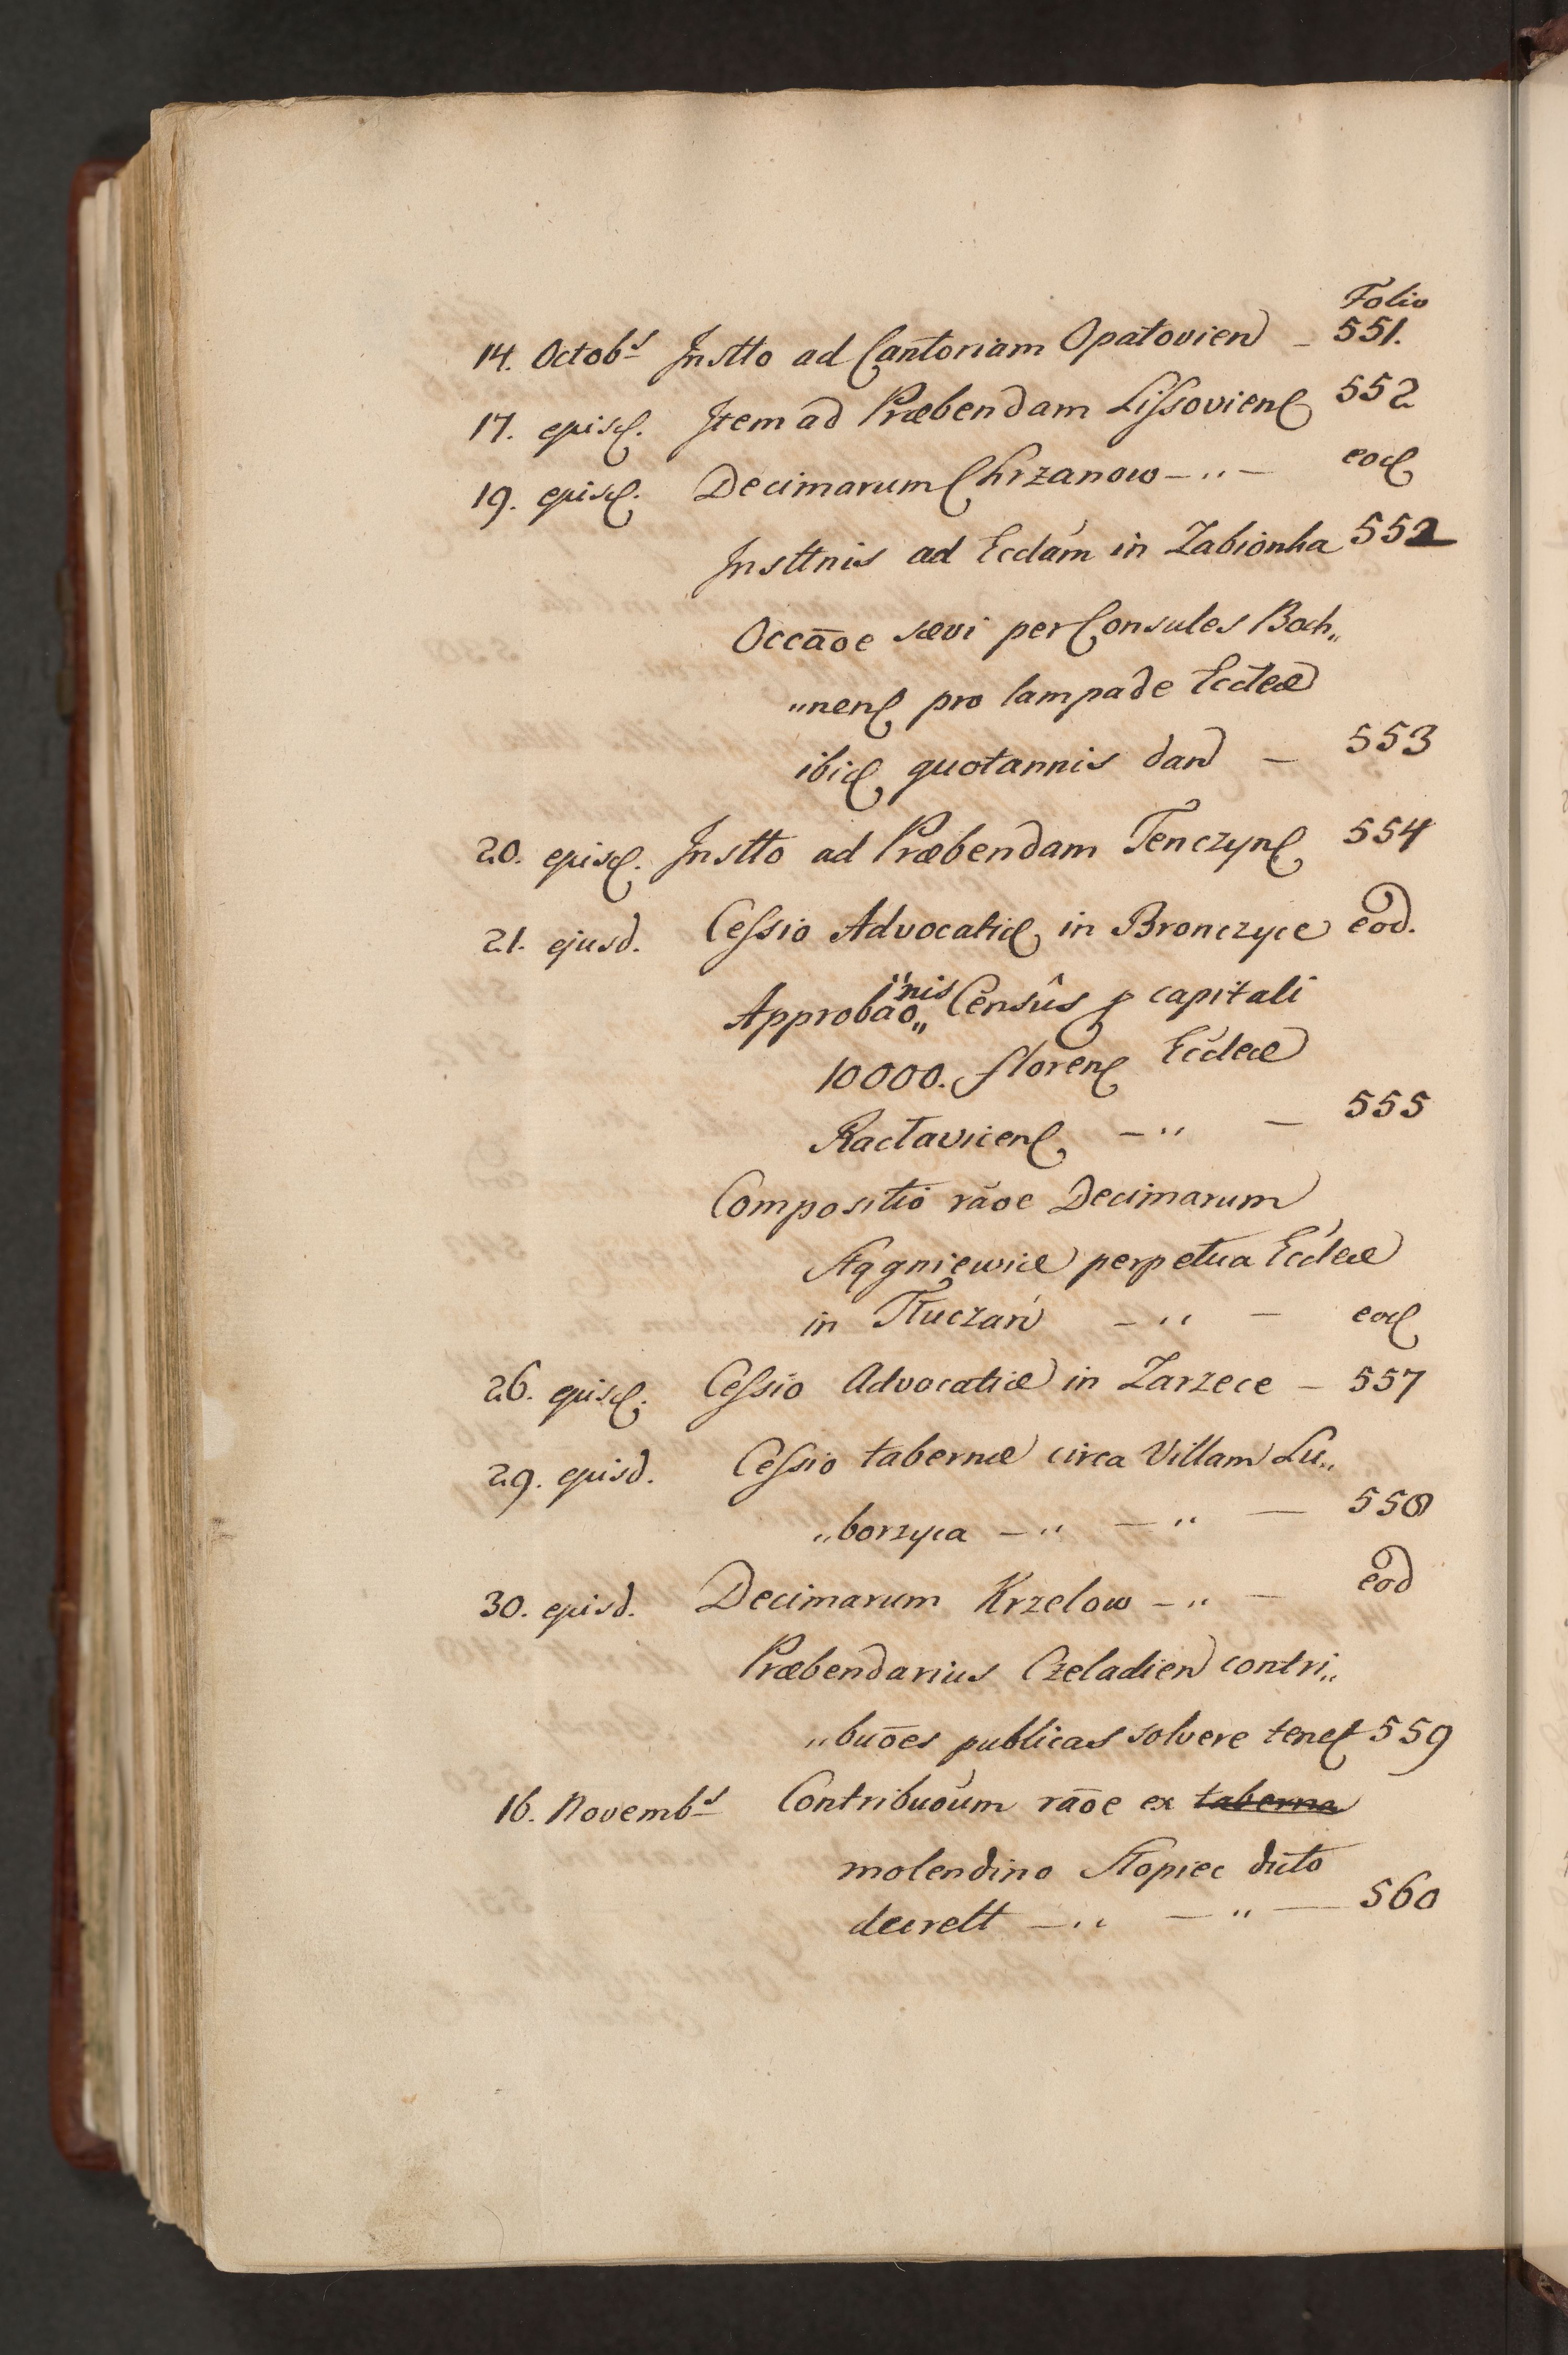 Folio
14. Octobs Instto ad Cantoriam Opatovien – 551.
17. ejusd. Item ad Præbendam Lissoviens 552
19. ejusd. Decimarum Chrzanow – " – eod
Insttnis ad Ecclam in Zabionka 552
Occaōe sævi per Consules Boch„
„nens pro lampade Ecclæ
ibid quotannis dand – 553
20. ejusd. Instto ad Præbendam Tenczyns 554
21. ejusd. Cessio Advocatiæ in Bronczyce eod.
Approbao„ "nis Censûs p capitali
10000. floren Ecclæ
Racłavicens – " – 555
Compositio rāoe Decimarum
Stągniewice perpetua Ecclæ
in Tłuczań – " – eod
26. ejusd. Cessio Advocatiæ in Zarzece – 557
29. ejusd. Cessio tabernæ circa Villam Lu„
„borzyca – " – " – 558
30. ejusd. Decimarum Krzelow – " – eod
Præbendarius Czeladien contri„
„buōes publicas solvere tenet 559
16. Novembs Contribuōum rāoe ex taberna
molendino Stopiec dicto
decrett – " – " – 560